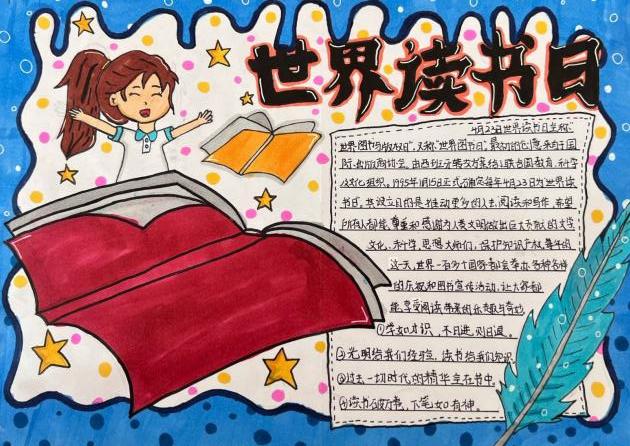 世界读书日
4月23日世界读书日全称
世界图书与版权日,又称"世界图书日",最初的创意来自于国
际出版商协会。由西班牙转交方案给了联合国教育、科学
及文化组织。1995年11月15日正式确定每年4月23日为世界读
书日,其设立目的是推动更多的人去阅读和写作,希望
所有人都能尊重和感谢为人类文明做出巨大贡献的文学
文化、科学、思想大师们,保护知识产权。每年的
这一天,世界一百多个国家都会举办各种各样
的庆祝和图书宣传活动,让大家都
能享受阅读带来的乐趣与奇妙
①学如才识,不日进,则日退
②光明给我们经验,读书给我们知识
③过去一切时代的精华全在书中
④读书破万卷,下笔如有神。